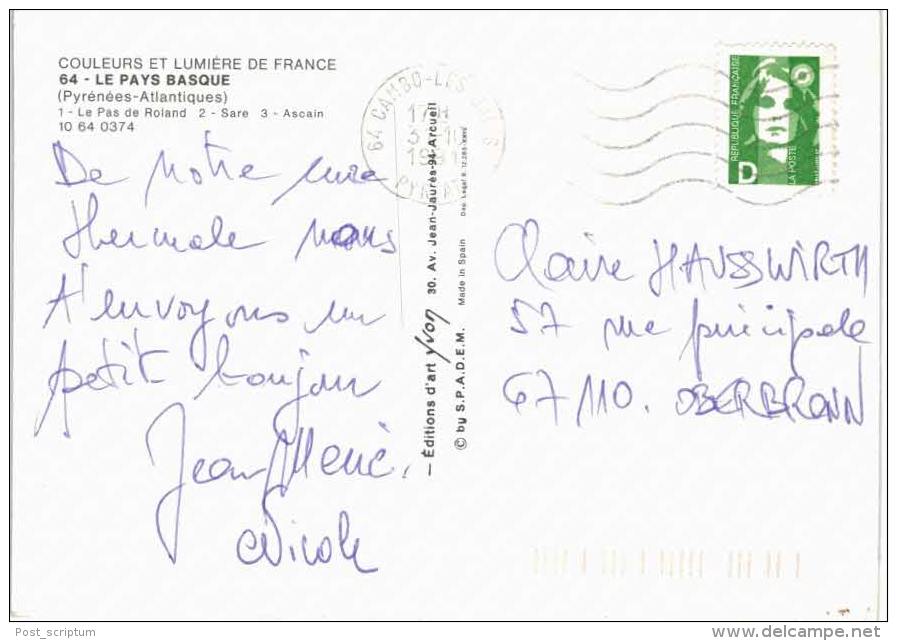 COULEURS ET LUMIÉRE DE FRANCE
64 - LE PAYS BASQUE
(Pyrénées-Atlantiques)
1 - Le Pas de Roland 2 - Sare 3 - Ascain
10 64 0374
De notre cure
thermale nous
t'envoyons un
petit bonjour
Jean Marie.
Nicole
64 CAMBO-LES
17 H
PYR AT
— Éditions d'art yvon 30. Av. Jean-Jaurès-94-Arcueil
© by S.P.A.D.E.M. Made in Spain
REPUBLIQUE FRANÇAISE
D
LA POSTE
Claire HAUSSWIRTH
57 rue principale
67110. OBERBRONN
Post_scriptum
delcampe.net